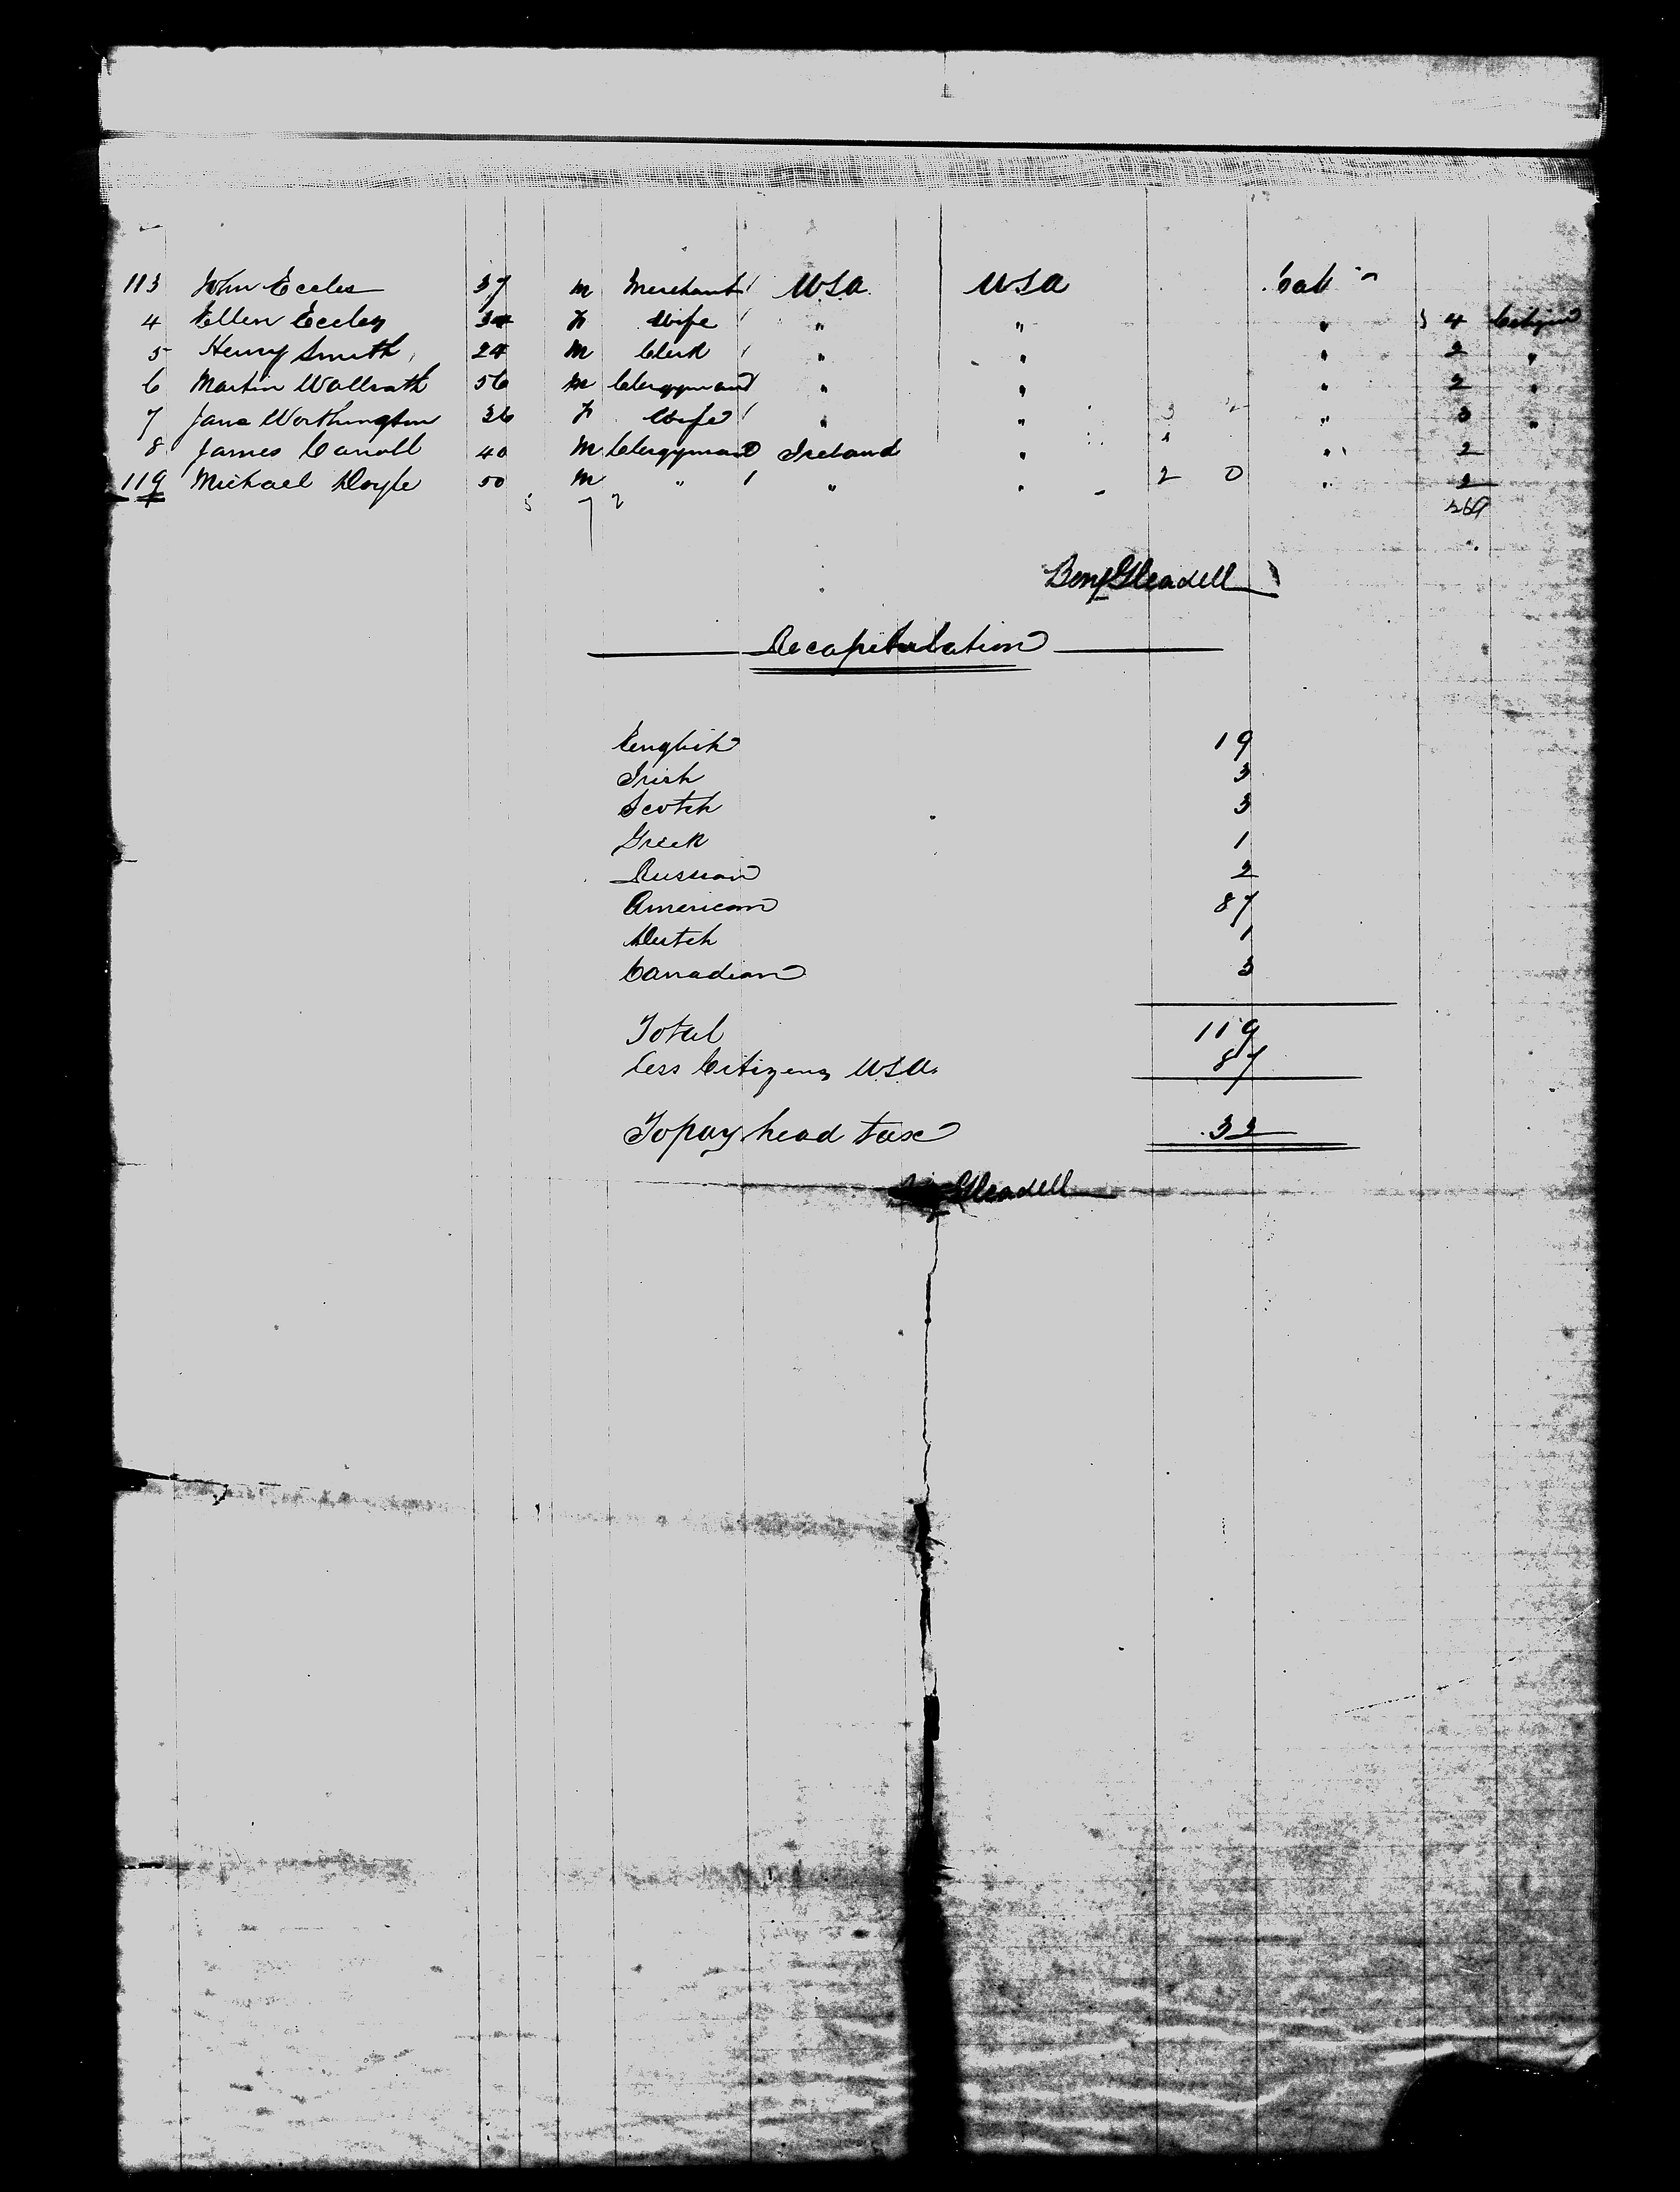 113 John Eccles 37 m Merchant USA USA Cab
4 Ellen Eccles 34 F Wife " " " 4 Citizen
5 Henry Smith 24 m Clerk " " " 2 "
6 Martin Wallrath 56 m Clergyman " " " 2 "
7 Jane Worthington 36 F Wife " " " 3 "
8 James Carroll 40 m Clergyman Ireland " " 2
119 Michael Doyle 50 m " " " 2 0 " 2
Benj Gleadell
Recapitulation
English 19
Irish 3
Scotch 3
Greek 1
Russian 2
American 87
Dutch 1
Canadian 3
Total 119
Less Citizens USA. 87
To pay head tax 32
Gleadell